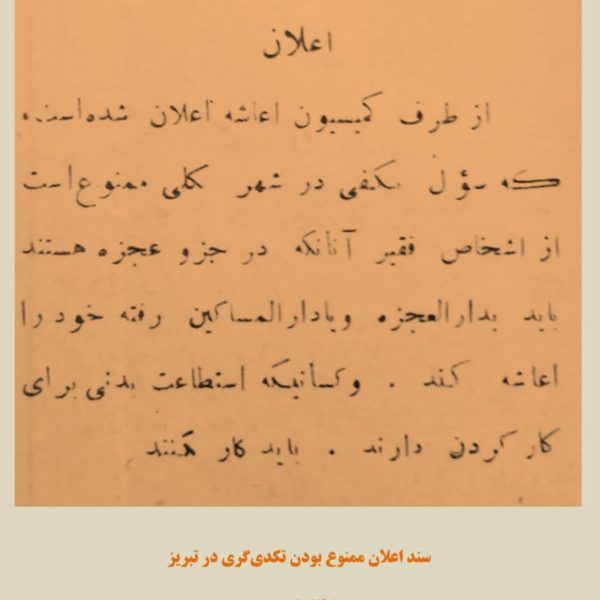 اعلان
از طرف کمیسیون اعاشه اعلان شده‌است
که سؤل بکفی در شهر کلی ممنوع است
از اشخاص فقیر آنانکه در جزو عجزه هستند
باید بدارالعجزه ویادارالمساکین رفته خود را
اعاشه کند . وکسانیکه استطاعت بدنی برای
کار کردن دارند . باید کار کنند
سند اعلان ممنوع بودن تکدی‌گری در تبریز